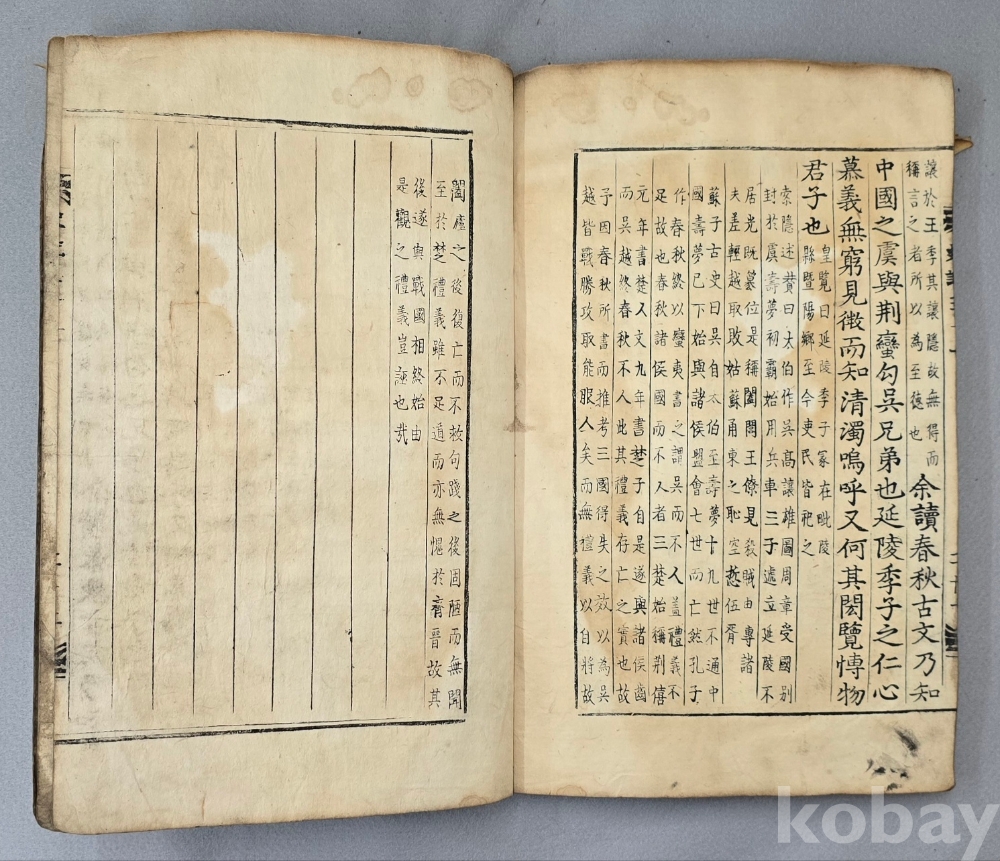 讓於王季其讓隱故無得而
稱言之者所以為至德也
余讀春秋古文乃知
中國之虞與荆蠻勾吳兄弟也延陵季子之仁心
慕義無窮見微而知清濁嗚呼又何其閎覽愽物
君子也
皇覽曰延陵季子冢在毗陵
縣暨陽鄉至今吏民皆祀之
索隱述賛曰太伯作吳高讓雄圖周章受國别
封於虞壽夢初霸始用兵車三子遞立延陵不
居光既簒位是稱闔閭王僚見殺賊由專諸
夫差輕越取敗姑蘇甬東之恥空慙伍胥
蘇子古史曰吳自太伯至壽夢十九世不通中
國壽夢已下始與諸侯盟會七世而亡然孔子
作春秋終以蠻夷書之謂吳而不人盖禮義不
足故也春秋諸侯國而不人者三楚始稱荆僖
元年書楚人文九年書楚子自是遂與諸侯齒
而吳越終春秋不人此其禮義存亡之實也故
予因春秋所書而推考三國得失之效以為吳
越皆戰勝攻取能服人矣而無禮義以自將故
闔廬之後復亡而不救句踐之後固陋而無聞
至於楚禮義雖不足道而亦無愧於齊晉故其
後遂與戰國相終始由
是觀之禮義豈誣也哉
kobay